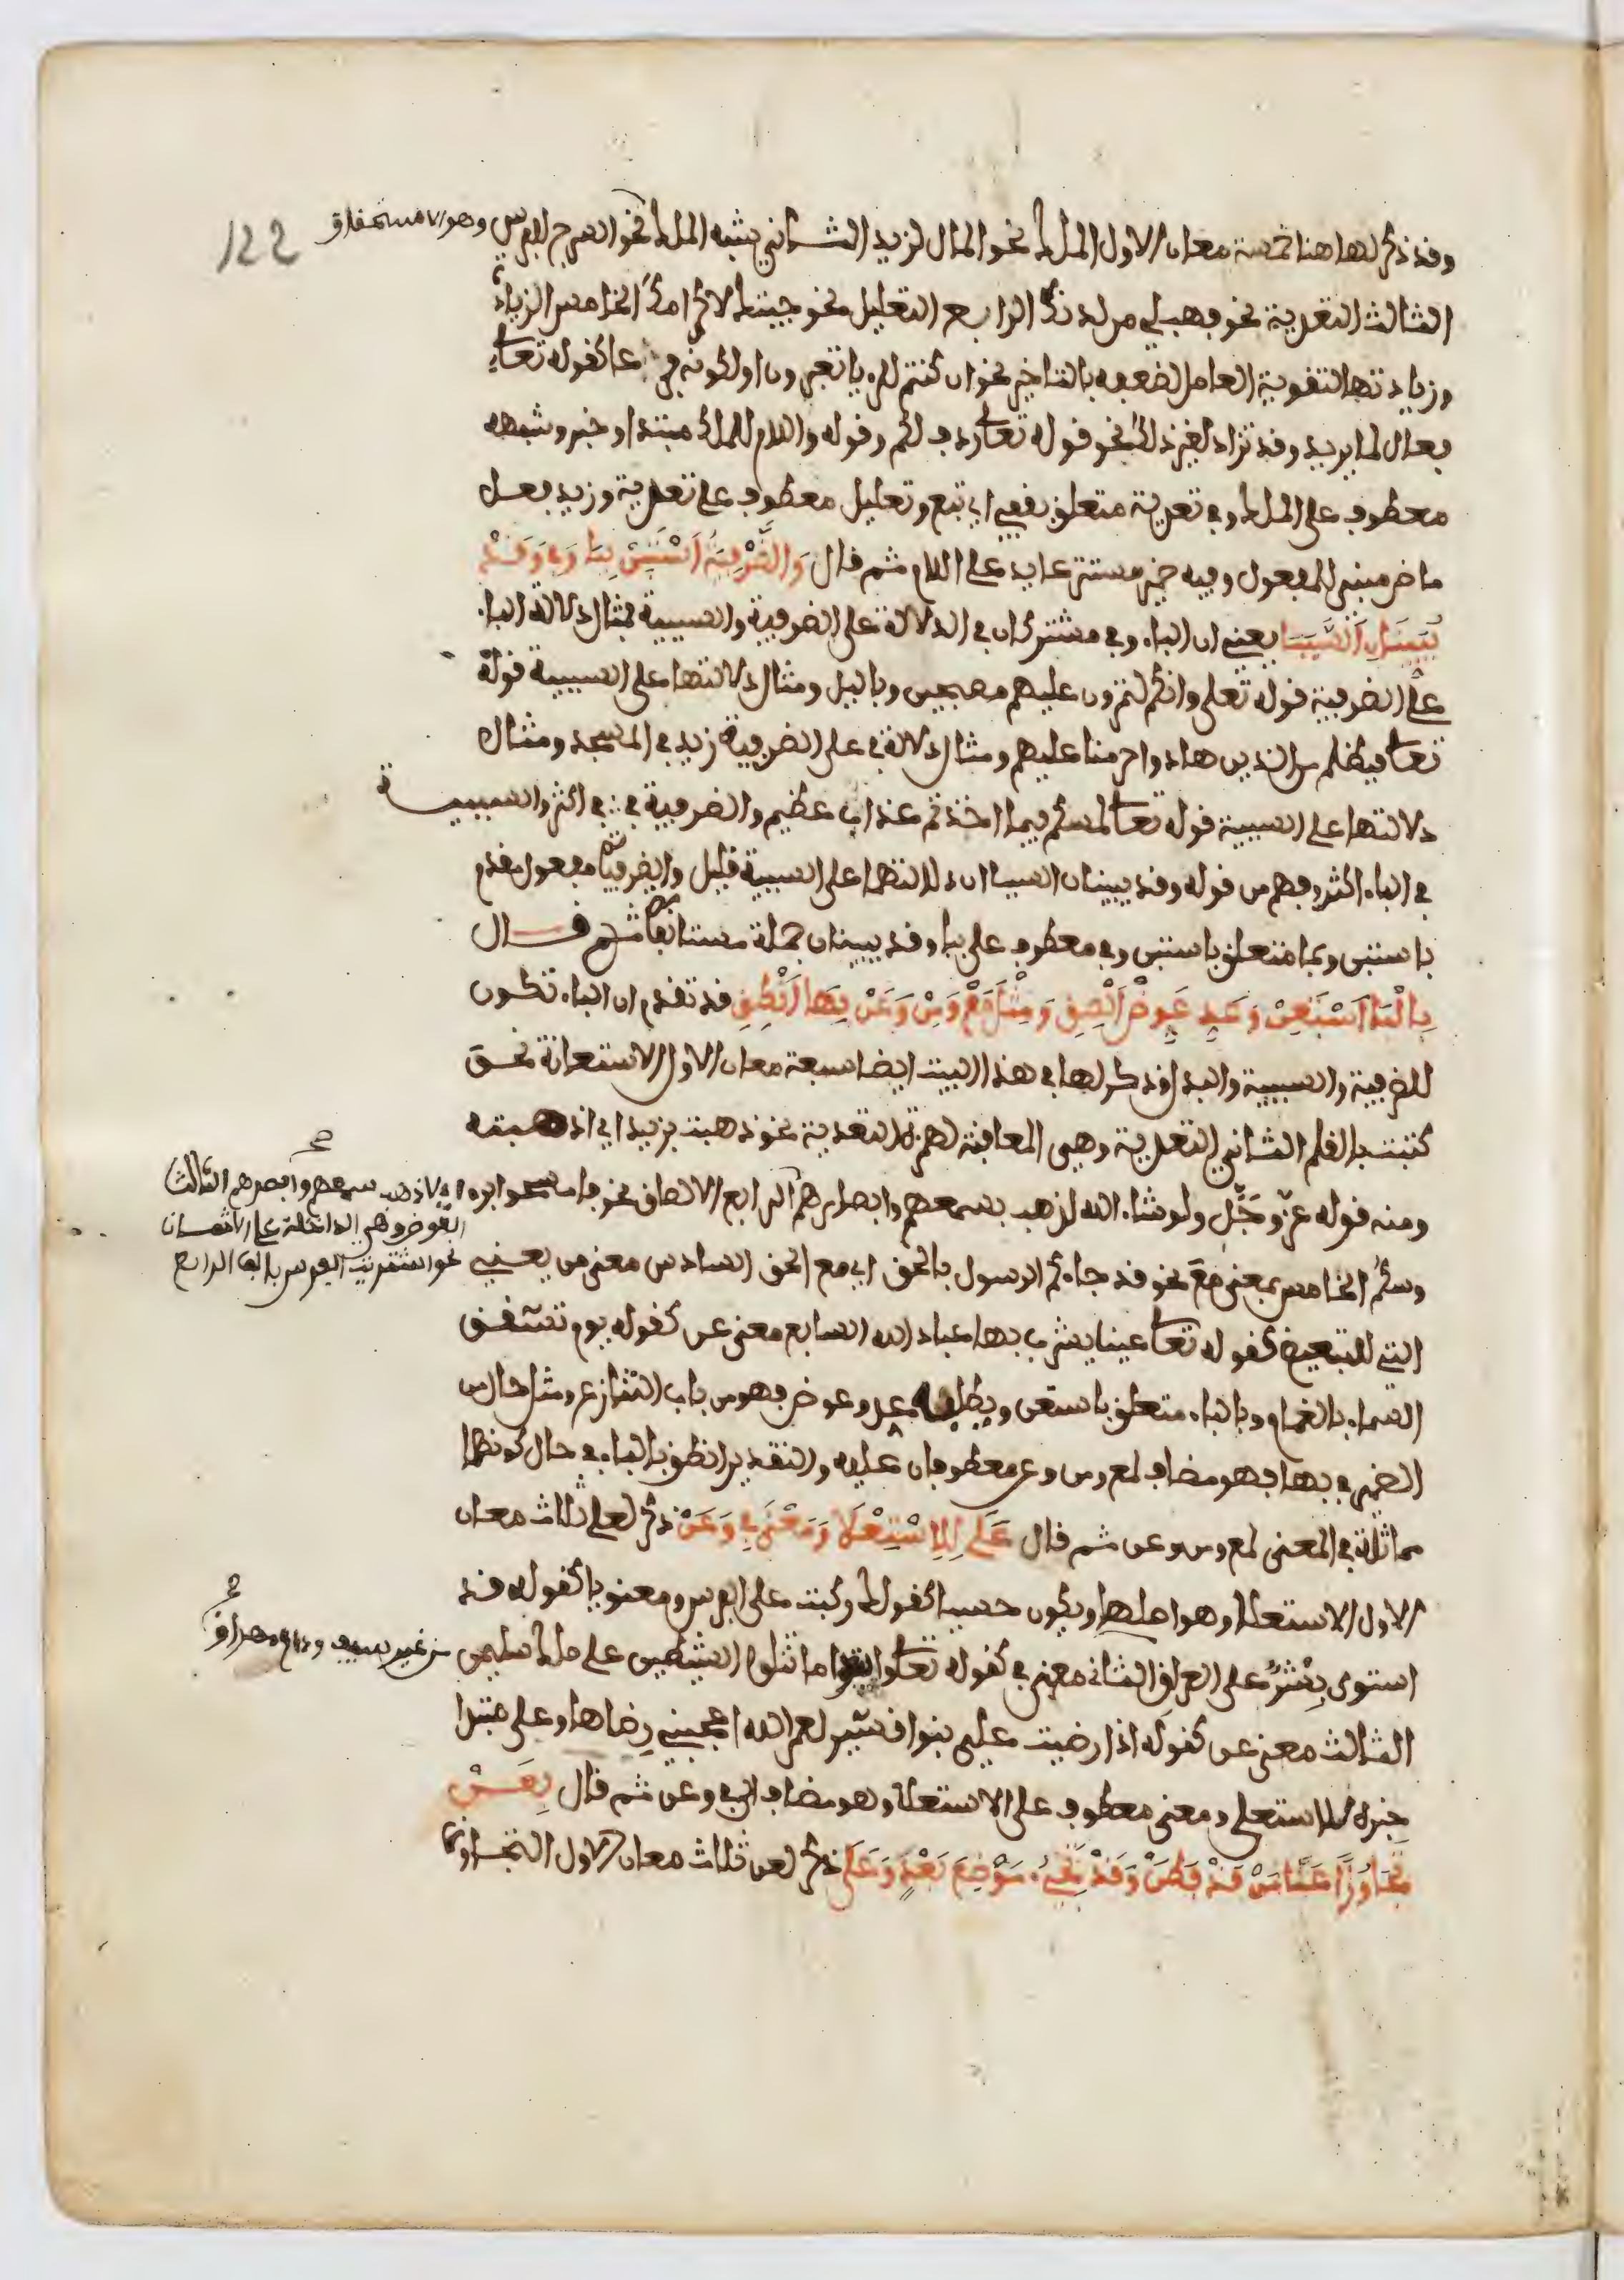 وقد ذكر لها هنا خمسة معان الاول الملك نحو المال لزيد الثاني شبه الملك نحو السرج للفرس وهو الاستحقاق
122
الثالث التعدية نحو فهب لي من لدنك الرابع التعليل نحو جيتك لاكرامك الخامس الزيادة
وزيادتها لتقوية العامل لضعفه بالتاخير نحو ان كنتم للرءيا تعبرون او لكونه فرعا كقوله تعالى
فعال لما يريد وقد تزاد لغير ذلك نحو قوله تعالى ردف لكم وقوله واللام للملك مبتدا وخبر وشبهه
معطوف على الملك وفي تعدية متعلق بقفي اي تبع وتعليل معطوف على تعدية وزيد فعل
ماض مبني للمفعول وفيه ضمير مستتر عايد على اللام ثم قال وَالظَّرْفِيَّةُ اَسْتَبِنْ بِبَا وَفِي وَقَدْ
يُبَيِّنَانِ اَلسَّبَبَا يعني ان الباء وفي مشتركان في الدلالة على الظرفية والسببية فمثال دلالة الباء
على الظرفية قوله تعلى وانكم لتمرون عليهم مصبحين وباليل ومثال دلالتها على السببية قوله
تعالى فبظلم من الذين هادوا حرمنا عليهم ومثال دلالة في على الظرفية زيد في المسجد ومثال
دلالتها على السببية قوله تعالى لمسكم فيما اخذتم عذاب عظيم والظرفية في في اكثر والسببية
في الباء اكثر وفهم من قوله وقد يبينان السببا ان دلالتهما على السببية قليل والظرفية مفعول مقدم
باستبن وببا متعلق باستبن وفي معطوف على ببا وقد يبينان جملة مستانفة ثم قال
بِالْبَا اَسْتَعِنْ وَعَدِّ عَوِّضْ اَلْصِقِ وَمِثْلَ مَعْ وَمِنْ وَعَنْ بِهَا اَنْطِقِ قد تقدم ان الباء تكون
للظرفية والسببية والبدل وذكر لها في هذا البيت ايضا سبعة معان الاول الاستعانة نحو
كتبت بالقلم الثاني التعدية وهي المعاقبة لهمزة التعدية نحو ذهبت بزيد اي اذهبته
ومنه قوله عز وجل ولو شاء الله لذهب بسمعهم وابصارهم الرابع الالصاق نحو فامسحوا برءو
اي لاذهب سمعهم وابصرهم الثالث
العوض وهي الداخلة على الاثمان
نحو اشتريت الفرس بالف الرابع
وسكم الخامس بمعنى مع نحو قد جاءكم الرسول بالحق اي مع الحق السادس معنى من يعني
التي للتبعيض كقوله تعالى عينا يشرب بها عباد الله السابع معنى عن كقوله يوم تشقق
السماء بالغمام وبالباء متعلق باستعن ويطلبه عد وعوض فهو من باب التنازع ومثل حال من
الضمير في بها فهو مضاف لمع ومن وعن معطوفان عليه والتقدير انطق بالباء في حال كونها
مماثلة في المعنى لمع ومن وعن ثم قال عَلَى لِلِاسْتِعْلَا وَمَعْنَى فِي وَعَنْ ذكر لعلى ثلاث معان
الاول الاستعلا وهو اصلها ويكون حسيا كقولك ركبت على الفرس ومعنويا كقوله قد
استوى بشر على العراق الثاني معنى في كقوله تعالى واتبعوا ما تتلوا الشيطين على ملك سليمن
من غير سيف ودم مهراق
الثالث معنى عن كقوله اذا رضيت علي بنوا قشير لعمر الله اعجبني رضاها وعلى مبتدا
خبره للاستعلى ومعنى معطوف على الاستعلا وهو مضاف الى في وعن ثم قال بِعَنْ
تَجَاوُزًا عَنَى مَنْ قَدْ فَطَنْ وَقَدْ تَجِي مَوْضِعَ بَعْدٍ وَعَلَى ذكر لعن ثلاث معان الاول التجاوز